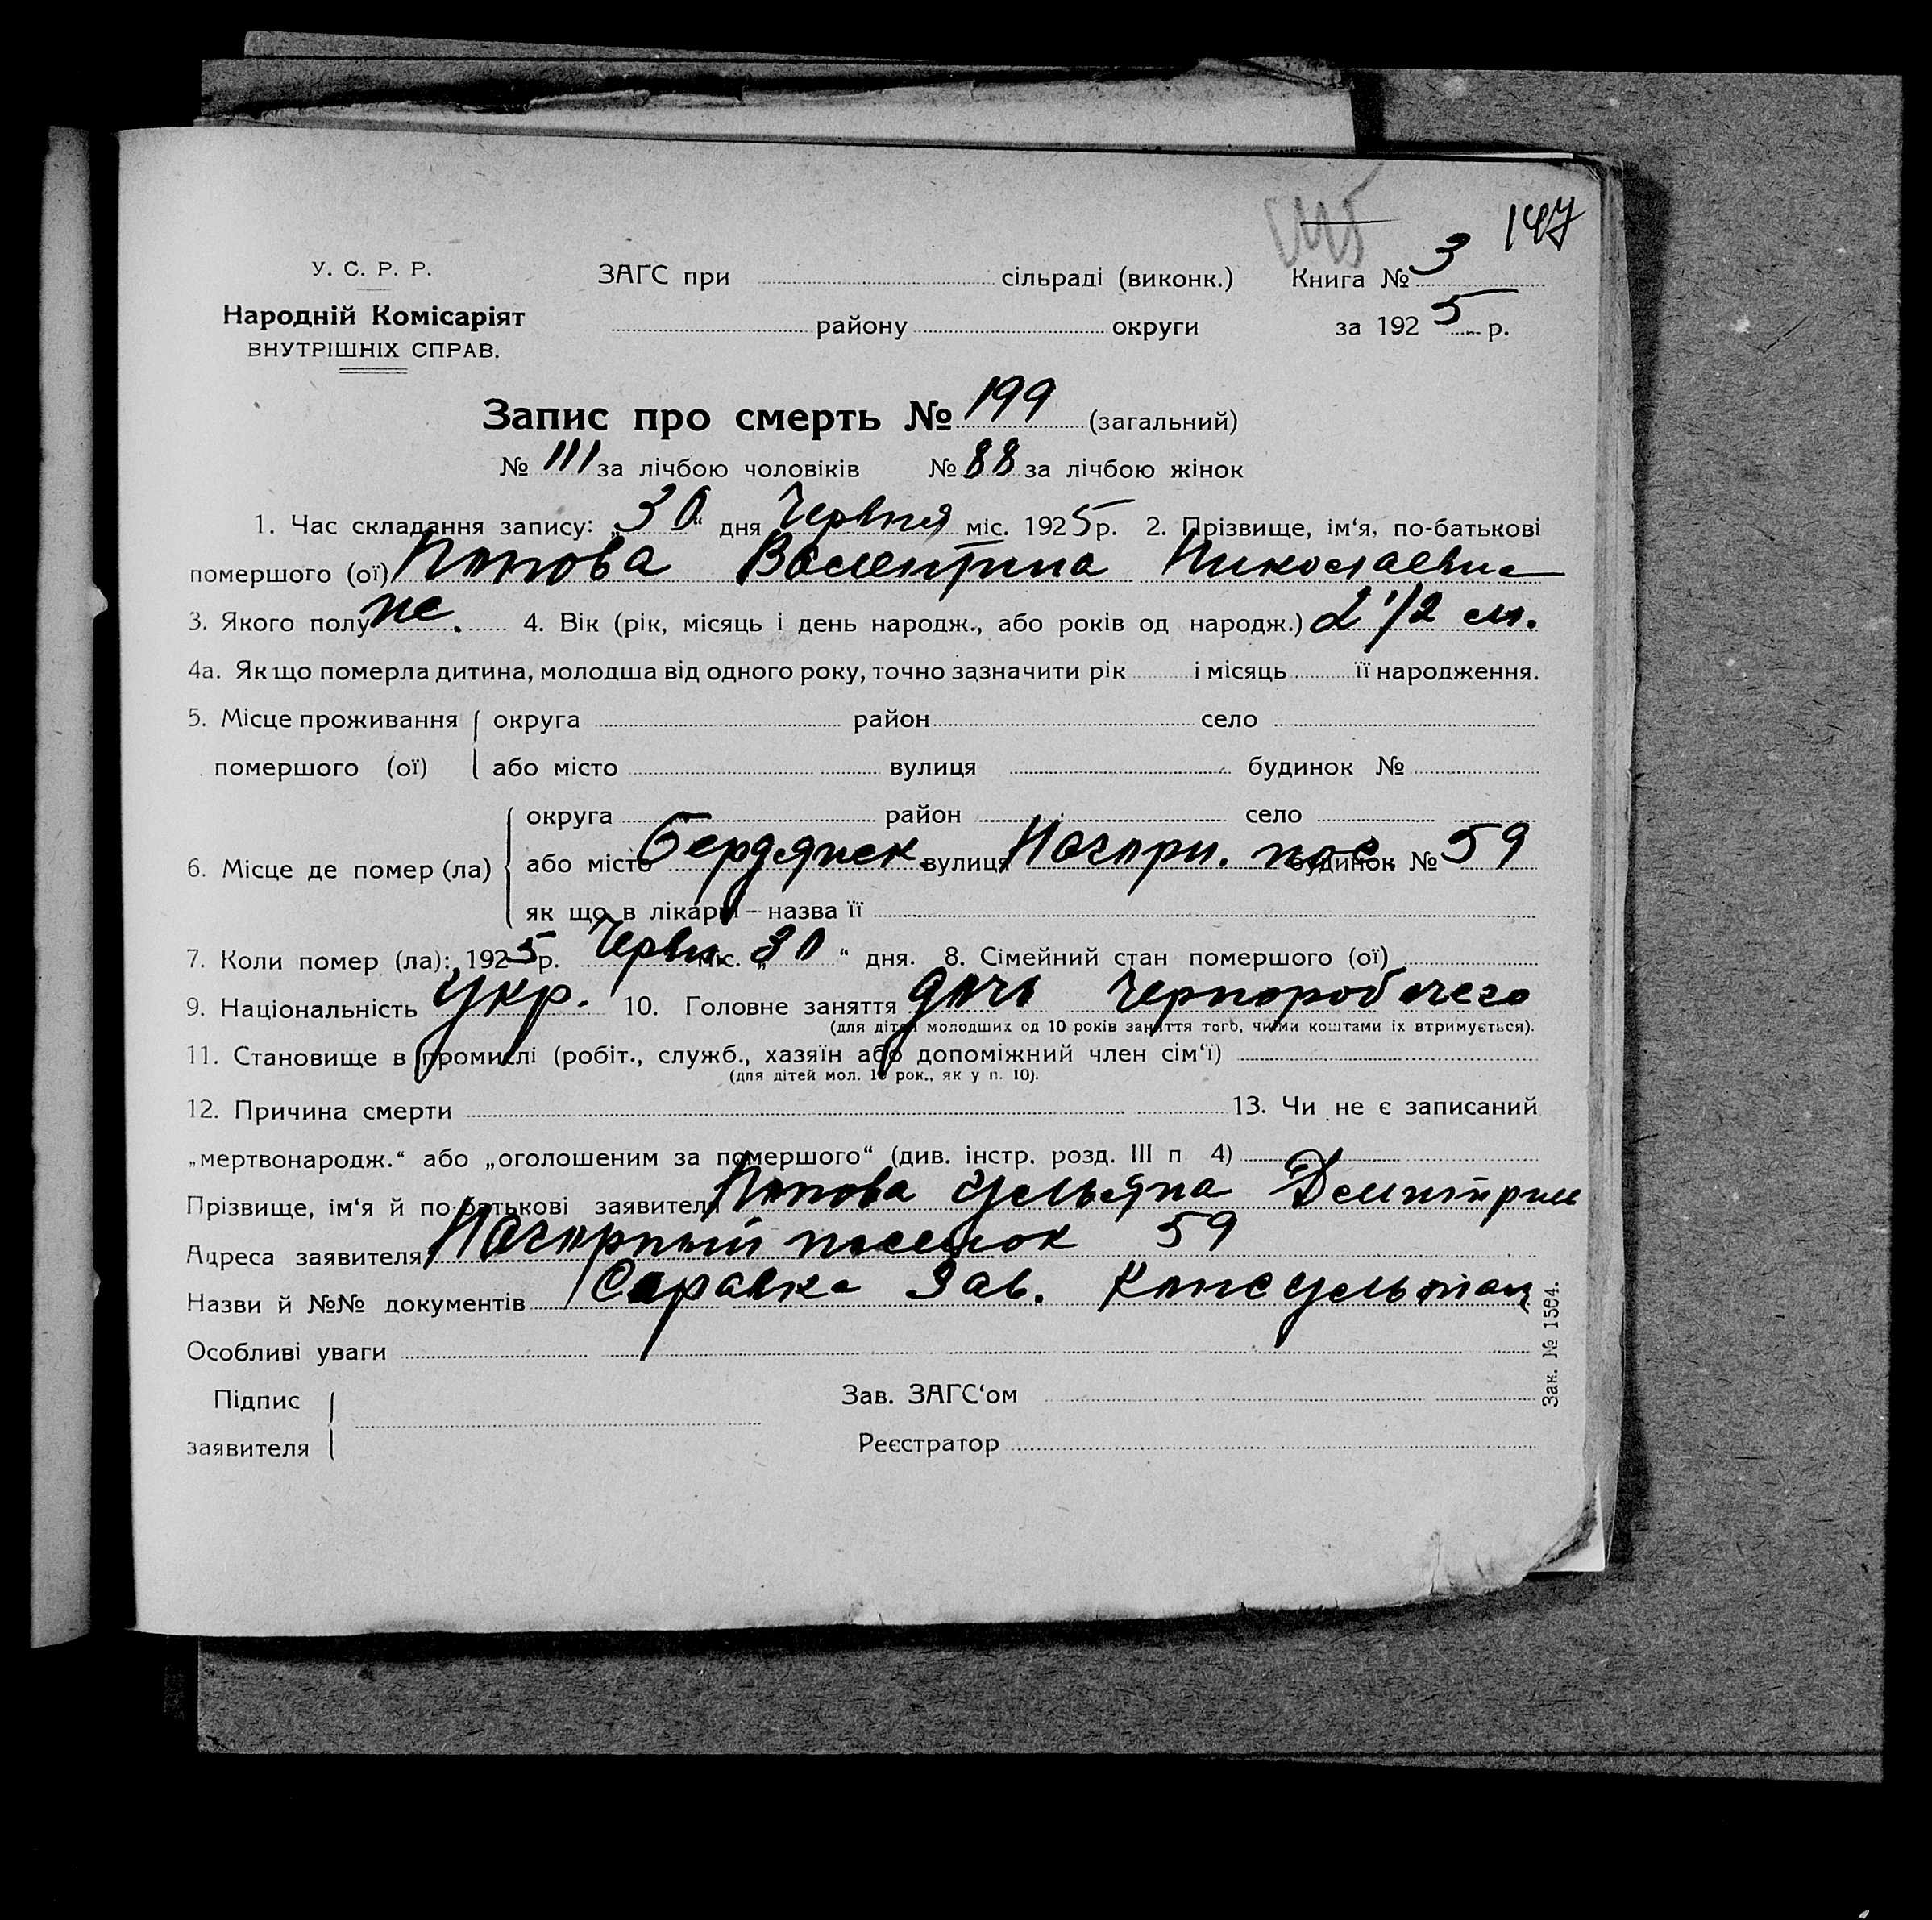 147
У. С. Р. Р. ЗАГС при сільраді (виконк.) Книга № 3
Народній Комісаріят району округи за 1925 р.
ВНУТРІШНІХ СПРАВ.
Запис про смерть № 199 (загальний)
№ 111 за лічбою чоловіків № 88 за лічбою жінок
1. Час складання запису: „30“ дня Червня міс. 1925 р. 2. Прізвище, ім‘я, по-батькові
помершого (ої) Попова Валентина Николаевна
3. Якого полу же. 4. Вік (рік, місяць і день народж., або років од народж.) 2 1/2 м.
4а. Як що померла дитина, молодша від одного року, точно зазначити рік і місяць її народження.
5. Місце проживання округа район село
помершого (ої) або місто вулиця будинок №
округа район село
6. Місце де помер (ла) або місто Бердянск вулиця Нагорн. пос. будинок № 59
як що в лікарні – назва її
7. Коли помер (ла): 1925 р. Червн. міс. „30“ дня. 8. Сімейний стан помершого (ої)
9. Національність Укр. 10. Головне заняття дочь Чернорабочего
(для дітей молодших од 10 років заняття того, чиїми коштами їх втримується).
11. Становище в промислі (робіт., служб., хазяїн або допоміжний член сім‘ї)
(для дітей мол. 10 рок., як у п. 10).
12. Причина смерти 13. Чи не є записаний
„мертвонародж.“ або „оголошеним за помершого“ (див. інстр. розд. III п 4)
Прізвище, ім‘я й по-батькові заявителя Попова Ульяна Демитрии
Адреса заявителя Нагорный поселок 59
Назви й №№ документів Справка Зав. Консультац
Особливі уваги
Підпис Зав. ЗАГС‘ом
заявителя Реєстратор
Зак. № 1504.